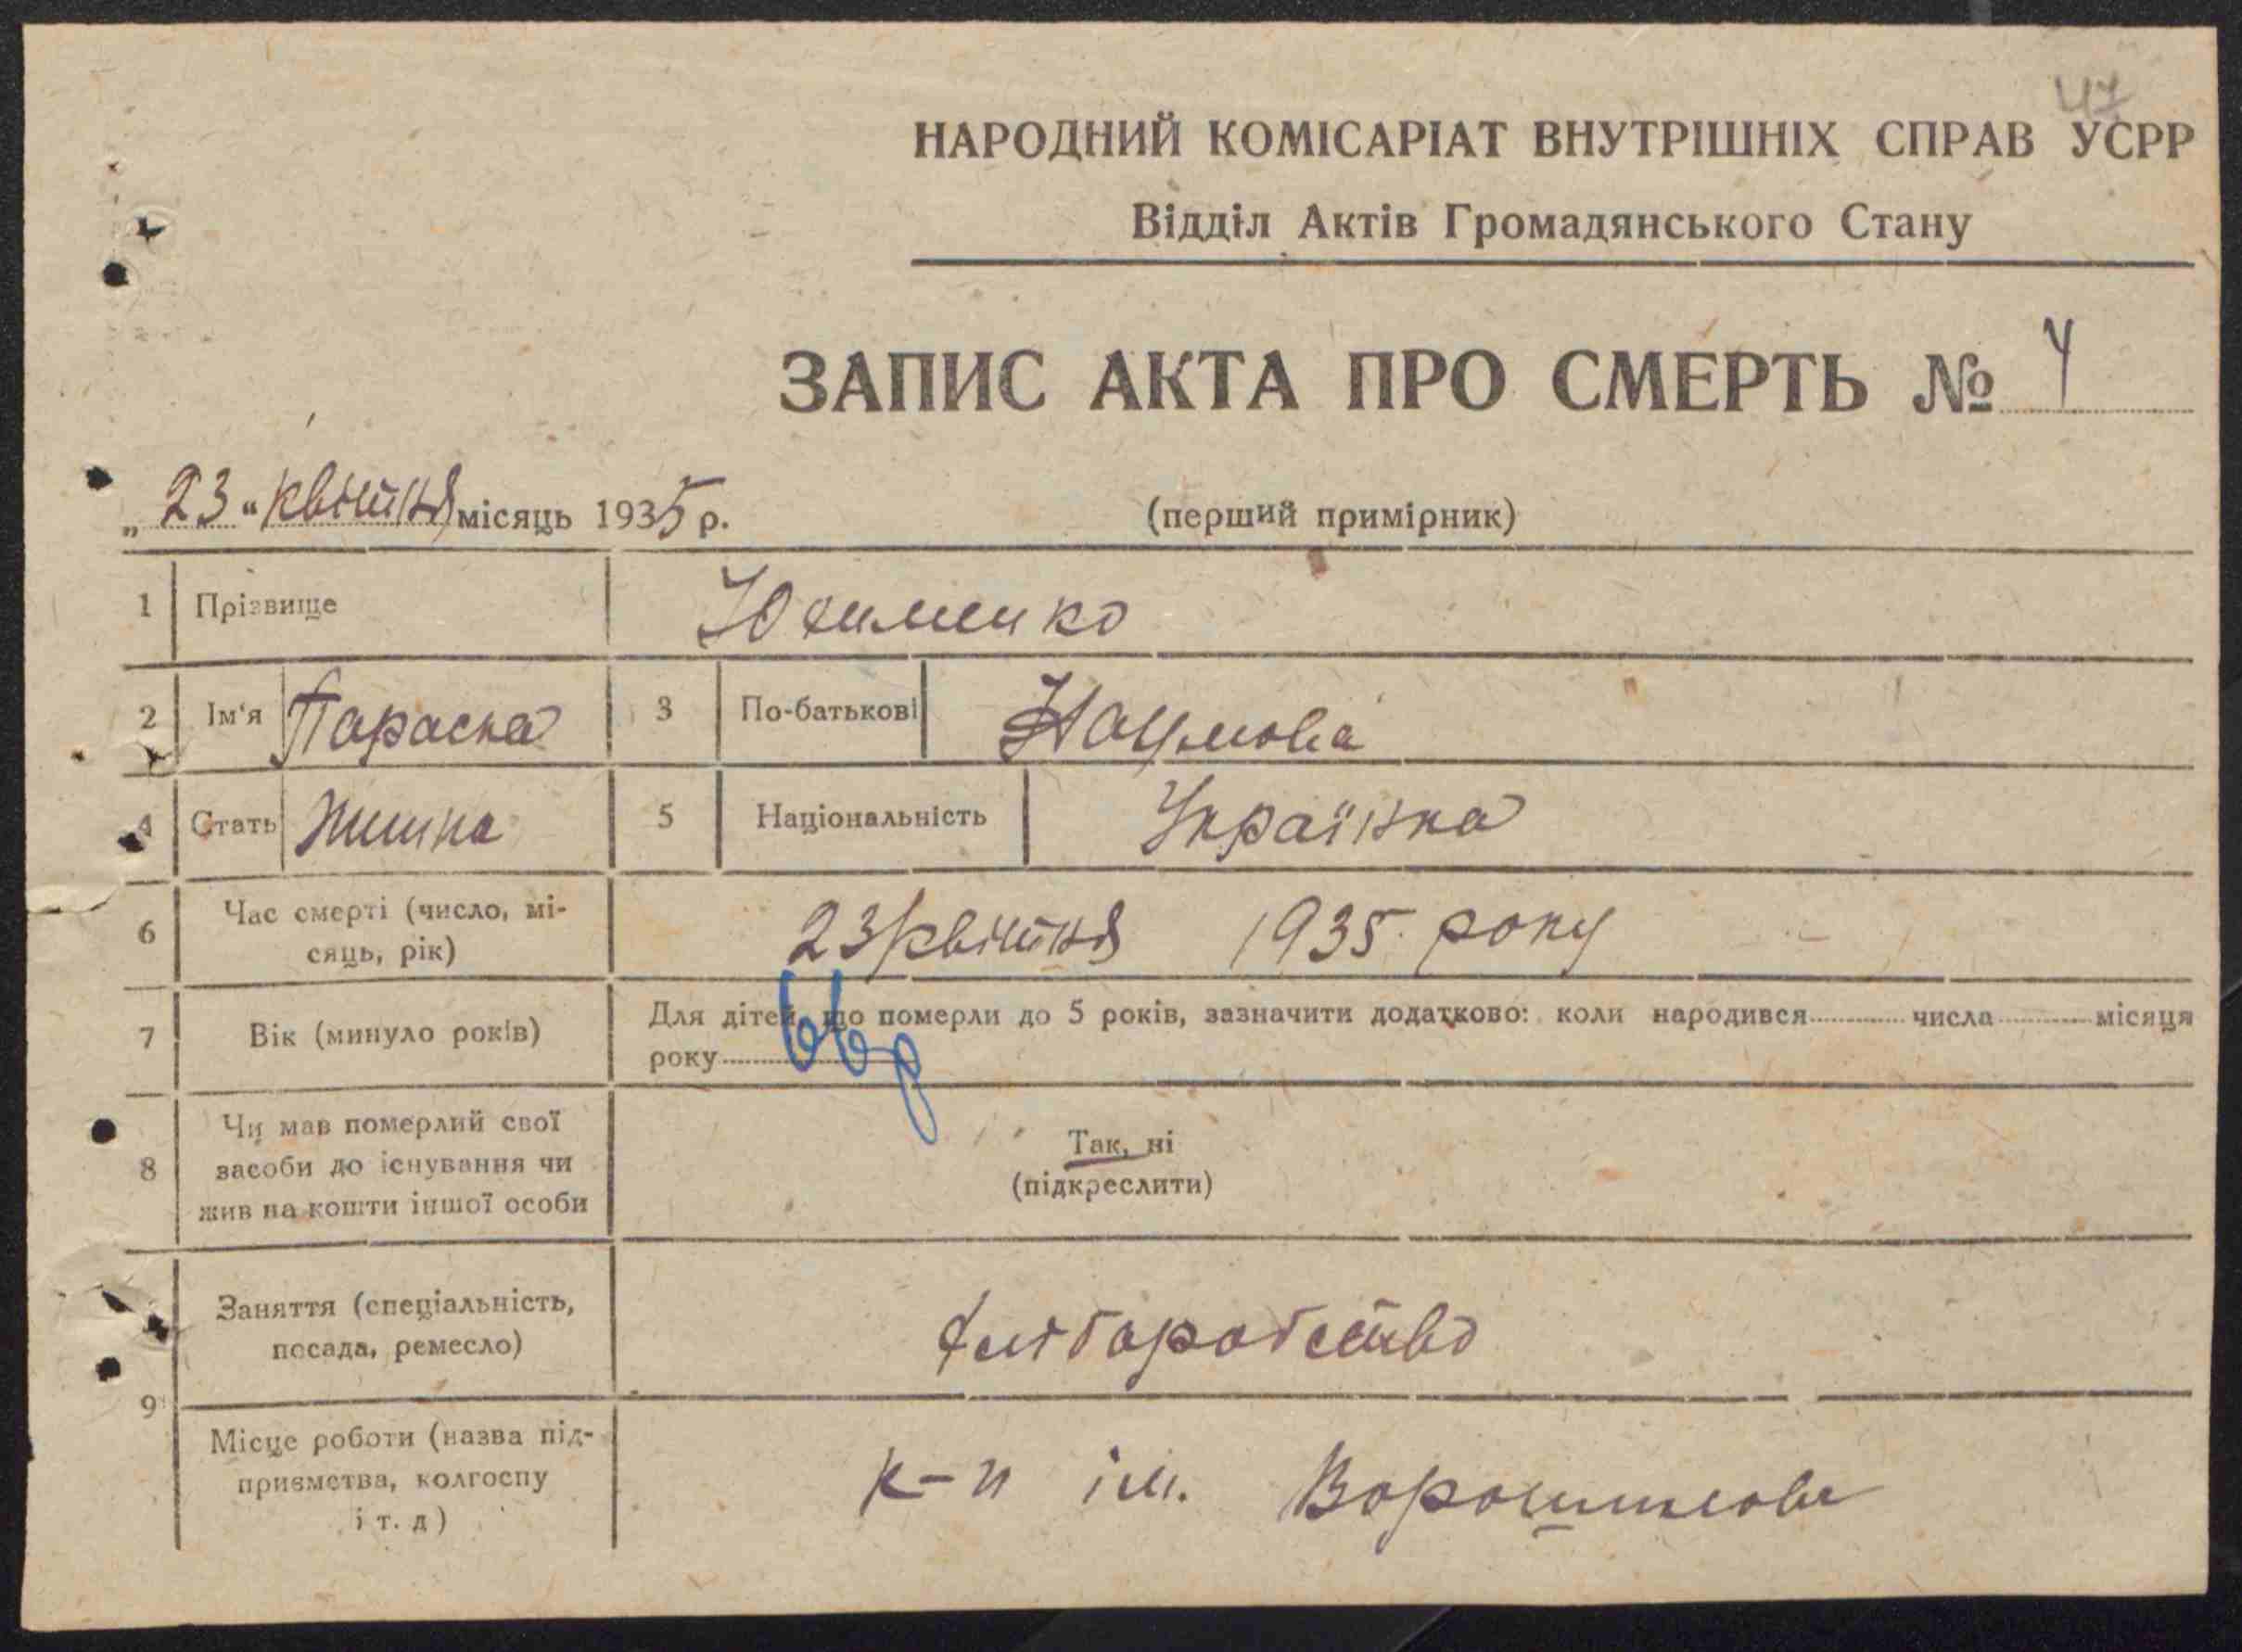 47
НАРОДНИЙ КОМІСАРІАТ ВНУТРІШНІХ СПРАВ УСРР
Відділ Актів Громадянського Стану
ЗАПИС АКТА ПРО СМЕРТЬ № 4
„23“ квітня місяць 1935 р.
(перший примірник)
1 Прізвище Юхименко
2 Ім'я Параска 3 По-батькові Наумова
4 Стать 5 Національність Українка
6 Час смерті (число, мі-
сяць, рік)
23 квітня 1935 року
7 Вік (минуло років)
Для дітей, що померли до 5 років, зазначити додатково: коли народився числа місяця
року
66 р
8 Чи мав померлий свої
засоби до існування чи
жив на кошти іншої особи
Так, ні
(підкреслити)
9 Заняття (спеціальність,
посада, ремесло)
Місце роботи (назва під-
приємства, колгоспу
і т. д)
к-п ім. Ворошилова